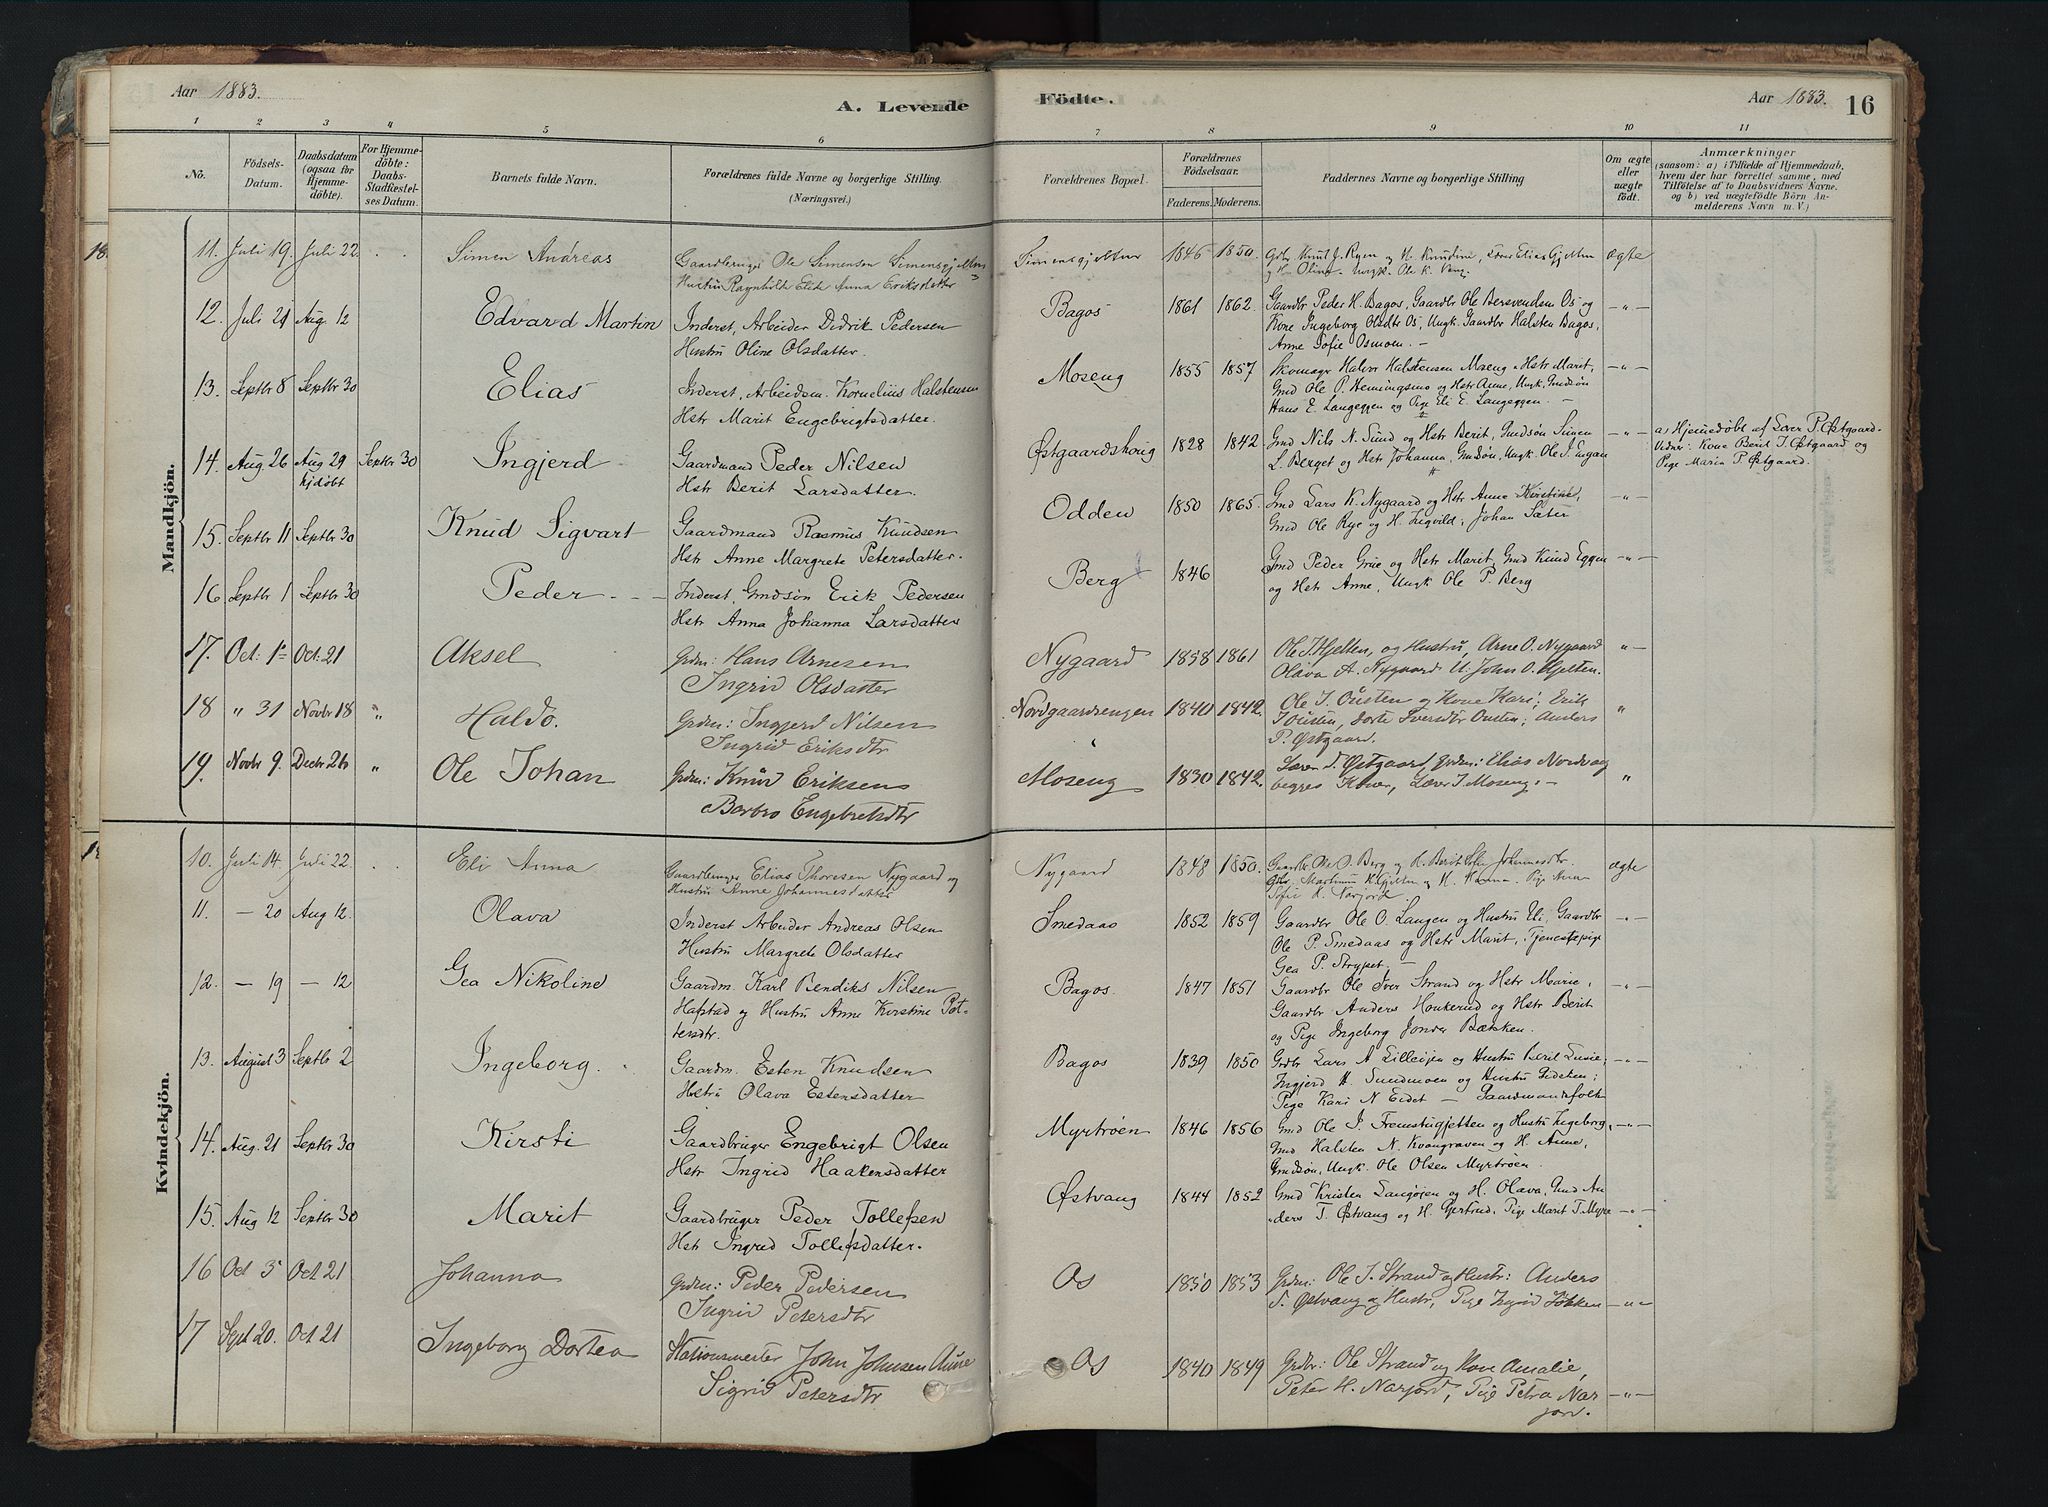 Aar 1883.
A. Levende
Fødte.
Aar 1883.
16
1 2 3 4 5 6 7 8 9 10 11
No.
Födsels-Datum.
Daabsdatum (ogsaa for Hjemmedöbte).
For Hjemmedöbte: Daabs-Stadfæstelses Datum.
Barnets fulde Navn.
Forældrenes fulde Navne og borgerlige Stilling. (Næringsvei.)
Forældrenes Bopæl.
Forældrenes Födselsaar.
Faderens. Moderens.
Faddernes Navne og borgerlige Stilling
Om ægte eller uægte födt.
Anmærkninger
(saasom: a) i Tilfælde af Hjemmedaab, hvem der har forrettet samme, med Tilföielse af to Daabsvidners Navne. og b) ved uægtefödte Börn Anmelderens Navn m. V.)
Mandkjön.
11. Juli 19. Juli 22. Simen Andreas Gaardbruger Ole Simensen Simensgjelten Hustru Ragnhild Anna Eriksdatter 1846 1850. Knut J. Ryen og H. Knudine, ægte
12. Juli 21 Aug. 12 Edvard Martin Inderst, Arbeider Didrik Pedersen
Hustru Oline Olsdatter. Bagos 1861 1862. Gaardbr Peder H. Bagos, Gaardbr Ole Bersvendsen Os og
Kone Ingeborg Olsdtr Os, Ungk. Gaardbr Halsten Bagos,
Anne Sofie Osmoen. –
13. Septbr 8 Septbr 30 Elias Inderst, Arbeidsm. Kornelius Halstensen
Hstr Marit Engebrigtsdatter. Moseng 1855 1857 Skomager Halvor Halstensen Moseng, Hstr Marit,
Gmd Ole P. Hemingsmo og Hstr Anne, Ungk. Gmdsön
Hans E. Langeggen og Pige Eli E. Langeggen. –
14. Aug 26 Aug 29 hjdöbt Septbr 30 Ingjerd Gaardmand Peder Nilsen
Hstr Berit Larsdatter. Østgaardshoug 1828 1842 Gmd Nils N. Sund og Hstr Berit, Gmdsön Simen
L. Berget og Hstr Johanna, Gmdsön, Ungk. Ole J. Engan
a) Hjemmedöbt af Lærer P. Østgaard.
Vidner: Kone Berit J. Østgaard og
Pige Maria P. Østgaard.
15. Septbr 11 Septbr 30 Knud Sigvart Gaardmand Rasmus Knudsen
Hstr Anne Margrete Petersdatter. Odden 1850 1865. Gmd Lars K. Nygaard og Hstr Anne Kirstine,
Gmd Ole Rye og H. Ingvild, Johan Sæter
16 Septbr 1 Septbr 30 Peder Inderst, Gmdsön Erik Pedersen
Hstr Anna Johanna Larsdatter Berg 1846 Gmd Peder Grue og Hstr Marit, Gmd Knud Eggen
og Hstr Anne, Ungk Ole P. Berg
17. Oct: 1ste Oct: 21 Aksel Grdm: Hans Arnesen
Ingrid Olsdatter Nygaard 1858 1861 Ole J. Hjelten, og Hustru, Arne O. Nygaard
Olava A. Nygaard U. John O. Hjelten.
18 " 31 Novbr 18 " Haldo. Grdm: Ingjerd Nilsen
Ingrid Eriksdtr Nordgaardsengen 1840 1842. Ole J. Ousten og Kone Kari; Erik
J. Ousten, Dorte Iversdtr Ousten; Anders
P. Østgaard.
19. Novbr 9. Decbr 26 " Ole Johan Grdm: Knud Eriksen
Barbro Engebretsdtr Moseng 1830 1842. Lærer J. Østgaard, Grdm: Elias Nordvang
begges Koner, Lærer J. Moseng. –
Kvindekjön.
10. Juli 14. Juli 22 Eli Anna Gaardbruger Elias Thoresen Nygaard og
Hustru Anne Johannesdatter Nygaard 1848 1850. Gaardbr Ole O. Berg og H. Berit Sofie Johannesdtr. ægte
Sofie K. Narjord
11. – 20 Aug 12. Olava Inderst Arbeider Andreas Olsen
Hustru Margrete Olsdatter Smedaas 1852 1859 Gaardbr Ole O. Langen og Hustru Eli, Gaardbr
Ole P. Smedaas og Hstr Marit, Tjenestepige
Gea P. Strypet. –
12. – 19 – 12 Gea Nikoline Gaardm. Karl Bendiks Nilsen
Hafstad og Hustru Anne Kirstine Pet-
tersdtr. Bagos. 1847 1851 Gaardbr Ole Iver Strand og Hstr Marie,
Gaardbr Anders Haukerud og Hstr Berit
og Pige Ingeborg Bækken.
13. August 3 Septb 2 Ingeborg. Gaardm. Esten Knudsen
Hstru Olava Estensdatter Bagos 1839 1850 Grdbr Lars A Lilleøien og Hustru Beril Lusie;
Ingjerd H. Sundmoen og Hustru
Pige Kari N Eidet – Gaardmandsfolk
14. Aug. 21 Septbr 30 Kirsti Gaardbruger Engebrigt Olsen
Hstr Ingrid Haakensdatter Myrtrøen 1846 1856 Gmd Ole J. Fremstugjelten og Hustru Ingeborg,
Gmd Halsten N. Kvangraven og H. Anne,
Gmdsön, Ungk. Ole Olsen Myrtrøen.
15. Aug 12 Septbr 30 Marit Gaardbruger Peder Tollefsen
Hstr Ingrid Tollefsdatter. Østvang 1844 1852 Gmd Kristen Langøien og H. Olava, Gmd An-
ders T. Østvang og H. Gertrud, Pige Marit T. Myre
16 Oct 5 Oct 21 Johanna Grdm: Peder Pedersen
Ingrid Petersdtr Os 1850 1853 Grdm: Ole J. Strand og Hustr: Anders
T. Østvang og Hustr, Pige Ingrid Løkken
17 Sept 20. Oct 21 Ingeborg Dortea Stationsmester John Johnsen Aune
Sigrid Petersdtr Os 1840 1849 Grdbr: Ole Strand og Kone Amalie,
Peter H. Narjord, Pige Petra Nar-
jord.